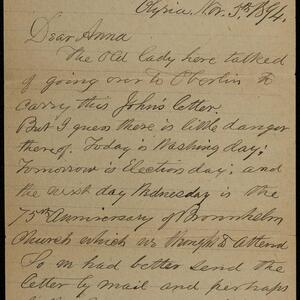 Elyria, Nov. 5th 1894.
Dear Anna
The Old lady here talked
of going over to Oberlin to
carry this John's letter.
But I guess there is little danger
thereof. Today is Washing day;
Tomorrow is Election day; and
the next day Wednesday is the
75th Anniversary of Brownhelm
Church which we thought to attend
So had better send the
letter by mail and perhaps